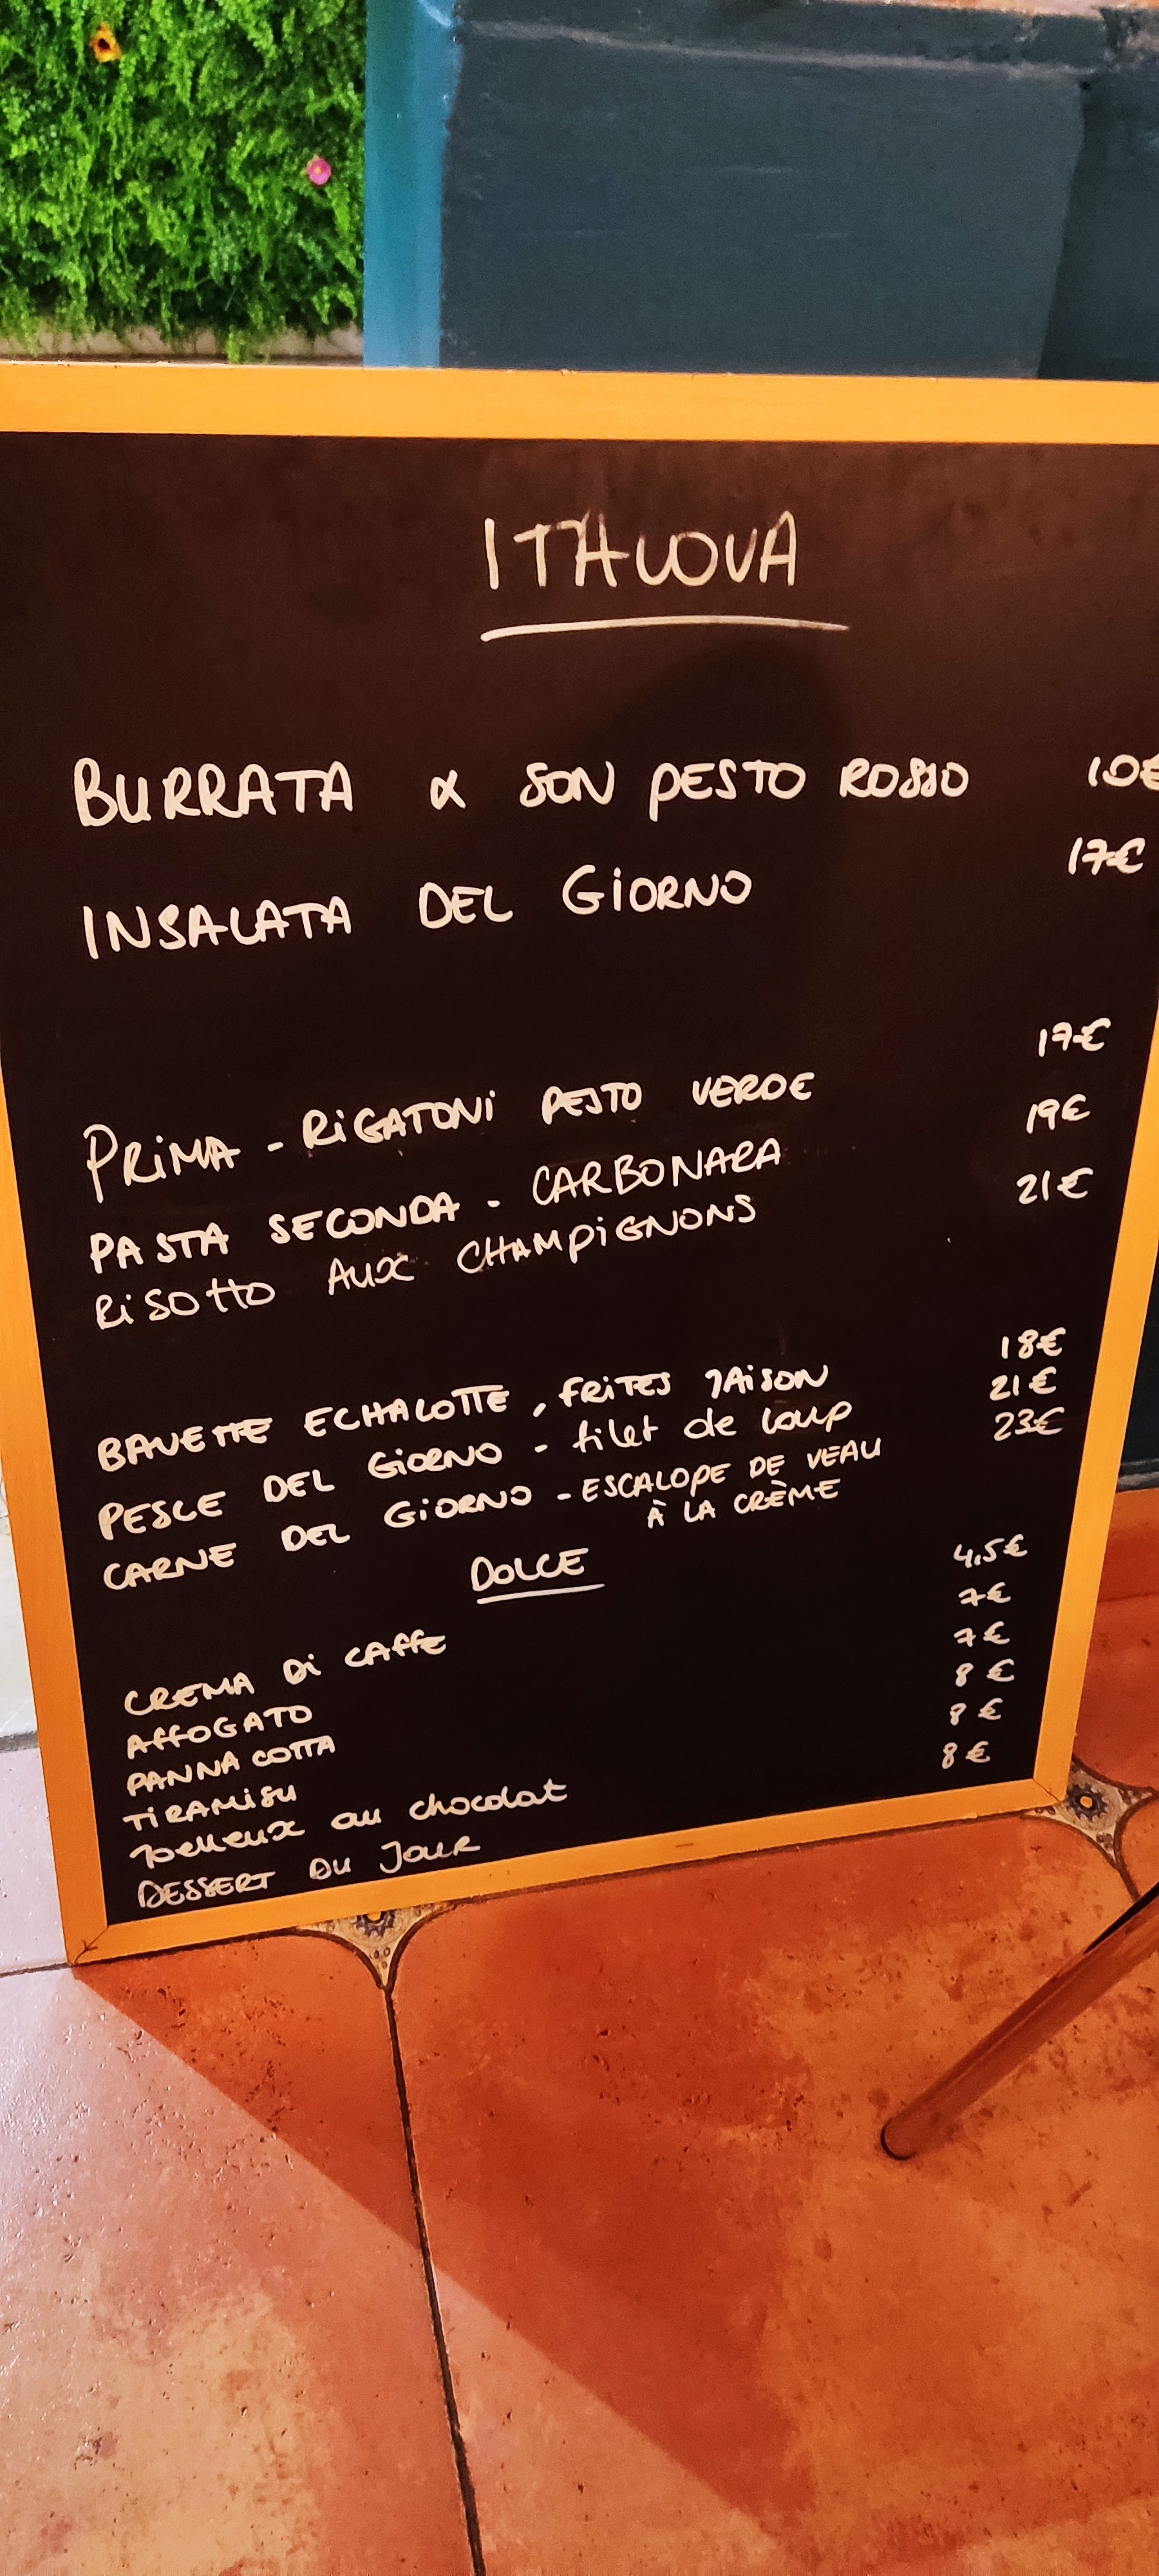 ITALOVA
BURRATA & SON PESTO ROSSO 10€
INSALATA DEL GIORNO 17€
PRIMA - RIGATONI PESTO VERDE 17€
PASTA SECONDA - CARBONARA 19€
RISOTTO AUX CHAMPIGNONS 21€
BAVETTE ECHALOTTE, FRITES MAISON 18€
PESCE DEL GIORNO - filet de loup 21€
CARNE DEL GIORNO - ESCALOPE DE VEAU 23€
À LA CRÈME
DOLCE
CREMA DI CAFFE 4,5€
AFFOGATO 7€
PANNA COTTA 7€
TIRAMISU 8€
Moelleux au chocolat 8€
DESSERT DU JOUR 8€